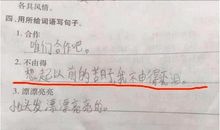 各具风情。
四、用所给词语写句子。
1. 合作
咱们合作吧。
2. 不由得
想起以前的苦日子我不由得流泪。
3. 漂漂亮亮
把头发漂漂亮亮的。